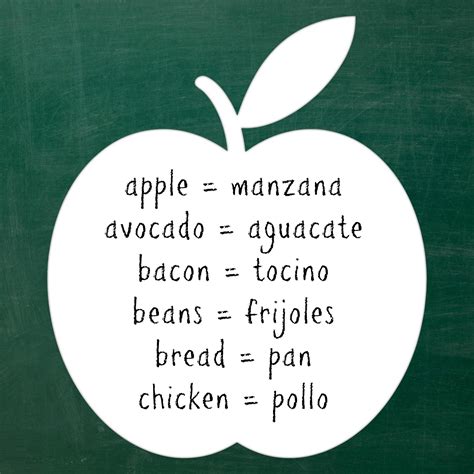 apple = manzana
avocado = aguacate
bacon = tocino
beans = frijoles
bread = pan
chicken = pollo